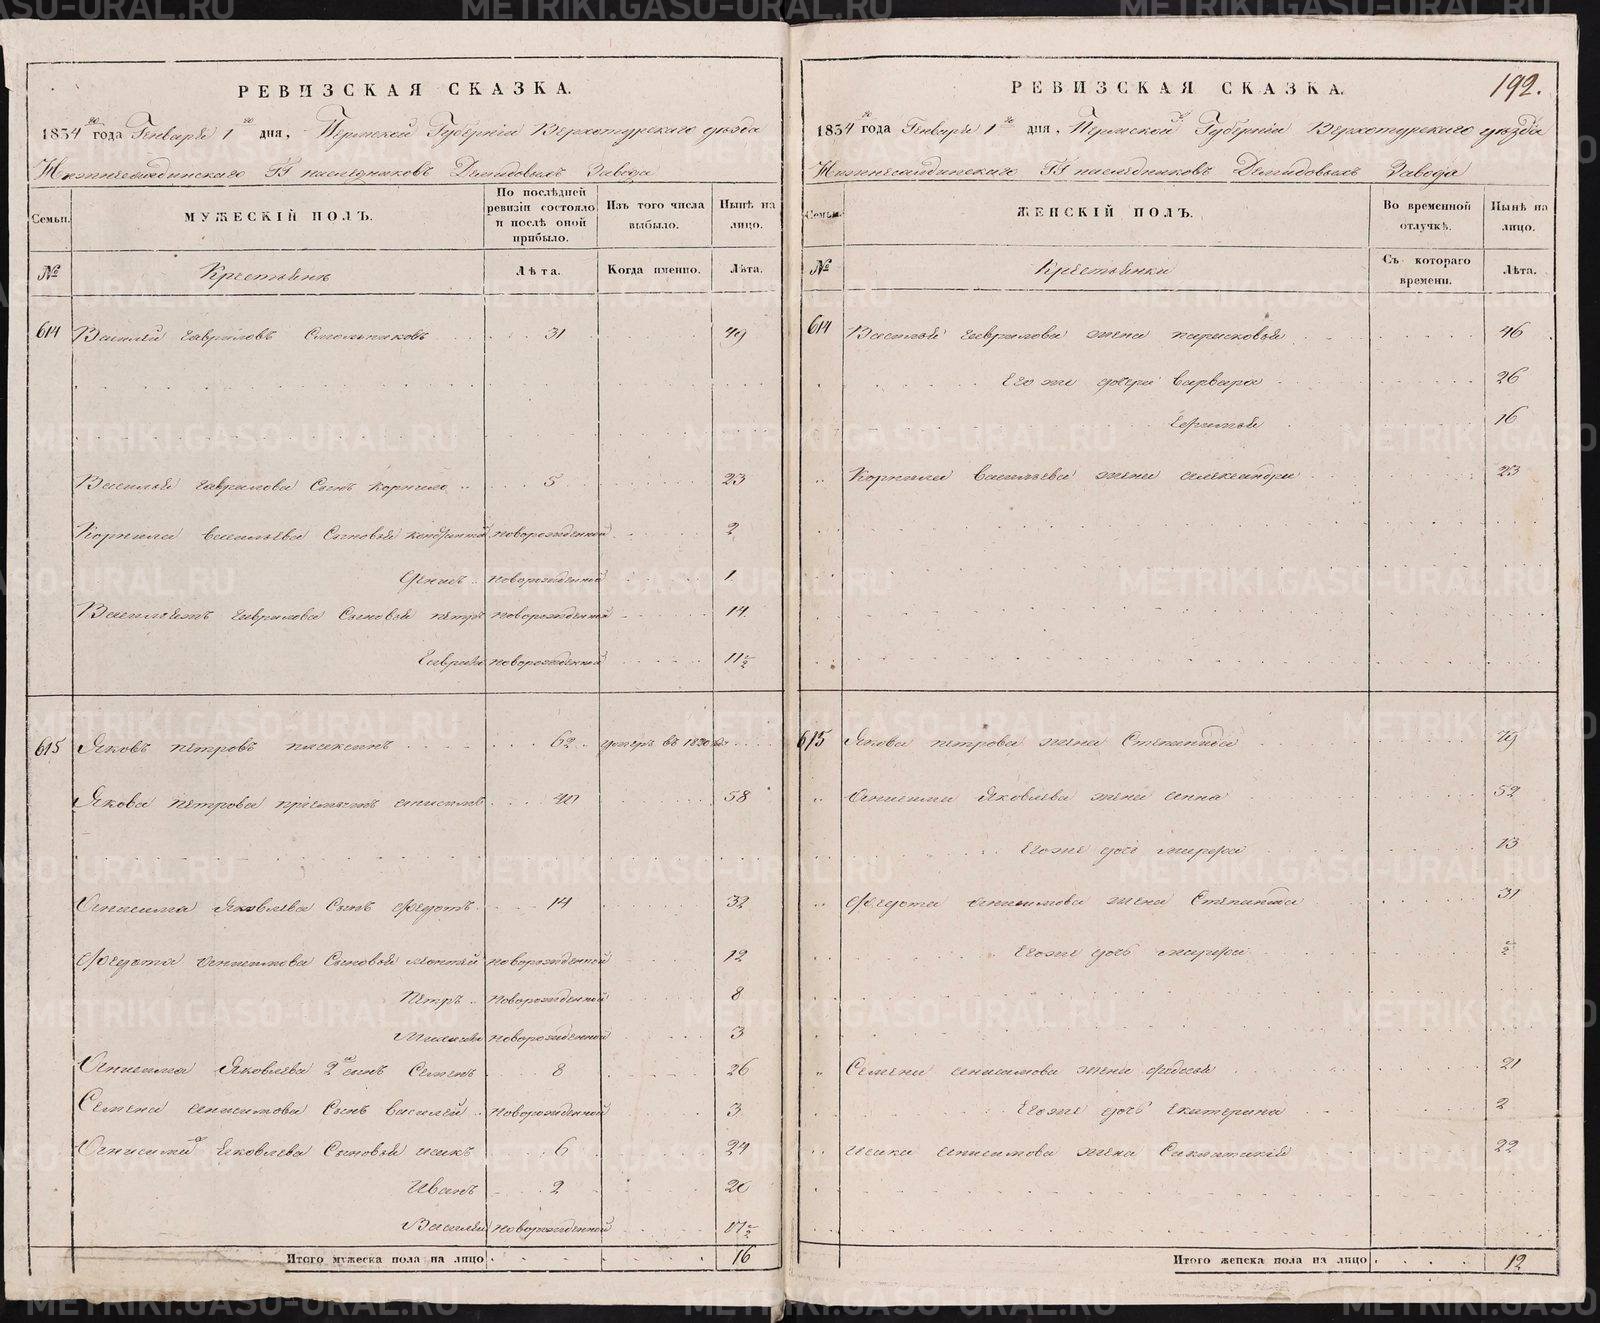 РЕВИЗСКАЯ СКАЗКА.
1834 го года Генваря 1 го дня, Пермской Губерніи Верхотурскаго уѣзда
Нижнесалдинскаго ГГ наслѣдниковъ Демидовыхъ Завода
Семьи. МУЖЕСКІЙ ПОЛЪ. По послѣдней ревизіи состояло и послѣ оной прибыло. Изъ того числа выбыло. Нынѣ на лицо.
№ Крестьянъ Лѣта. Когда именно. Лѣта.
614 Василій Гавриловъ Смольниковъ 31 49
Василья Гаврилова Сынъ Корнило 5 23
Корнила Васильева Сыновья Кондратій новорожденной 2
новорожденной 1
Гаврилова Сыновья Петръ новорожденной 14
Гаврило новорожденной 11 ½
615 Яковъ Петровъ 62 умеръ въ 1820
Якова Петрова пріемышъ Анисимъ 40 58
Анисима Яковлева Сынъ Федотъ 14 32
Федота Анисимова Сыновья новорожденной 12
Петръ новорожденной 8
Михайло новорожденной 3
Анисима Яковлева 2 й сынъ Семенъ 8 26
Семена Анисимова Сынъ Василей новорожденной 3
Анисима Яковлева Сыновья Исакъ 6 24
Иванъ 2 20
Василей новорожденной 17 ½
Итого мужеска пола на лицо 16
192.
РЕВИЗСКАЯ СКАЗКА.
1834 го года Генваря 1 го дня, Пермской Губерніи Верхотурскаго уѣзда
Нижнесалдинскаго ГГ наслѣдниковъ Демидовыхъ Завода
Семьи. ЖЕНСКІЙ ПОЛЪ. Во временной отлучкѣ. Нынѣ на лицо.
№ Крестьянки Съ котораго времени. Лѣта.
614 Василья Гаврилова жена 46
Его же дочери Варвара 26
16
Корнила Васильева жена Александра 23
615 Якова Петрова жена Степанида
Анисима Яковлева жена Анна 52
Его же дочь Марфа 13
Федота Анисимова жена Степанида 31
Его же дочь Марфа ½
Семена Анисимова жена Федосья 21
Его же дочь Екатерина 2
Исака Анисимова жена 22
Итого женска пола на лицо 12
METRIKI.GASO-URAL.RU